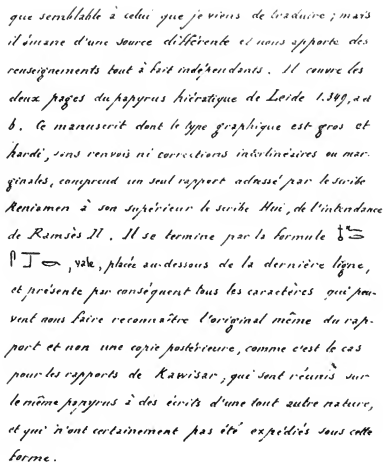 que semblable à celui que je viens de traduire ; mais
il émane d'une source différente et nous apporte des
renseignements tout à fait indépendants. Il couvre les
deux pages du papyrus hiératique de Leide I.349, a d
b. Ce manuscrit dont le type graphique est gros et
hardi, sans renvois ni corrections interlinéaires ou mar-
ginales, comprend un seul rapport adressé par le scribe
Keniamen à son supérieur le scribe Hui, de l'intendance
de Ramsès II. Il se termine par la formule
, vale, placée au-dessous de la dernière ligne,
et présente par conséquent tous les caractères qui peu-
vent nous faire reconnaître l'original même du rap-
port et non une copie postérieure, comme c'est le cas
pour les rapports de Kawisar, qui sont réunis sur
le même papyrus à des écrits d'une tout autre nature,
et qui n'ont certainement pas été expédiés sous cette
forme.